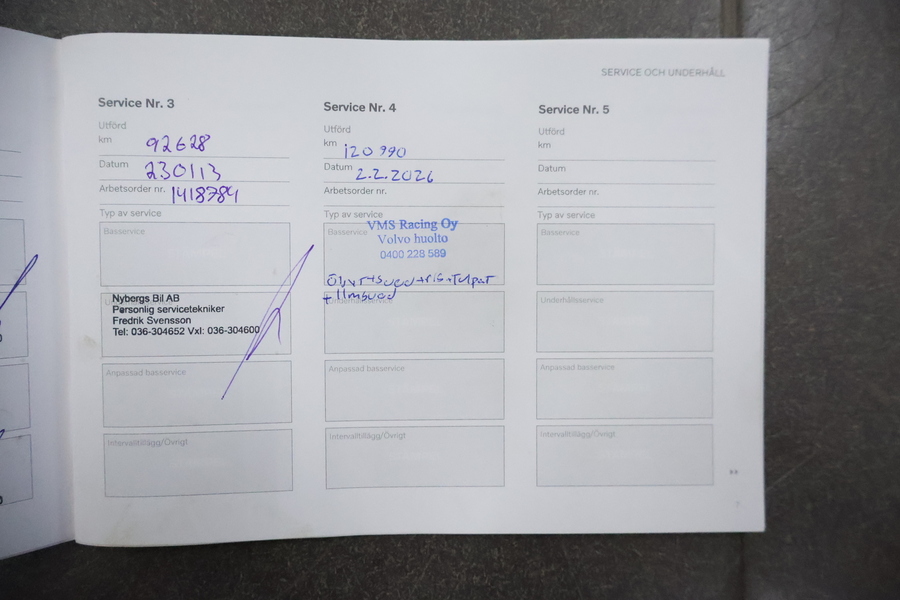 SERVICE OCH UNDERHÅLL
Service Nr. 3
Utförd
km 92628
Datum 230113
Arbetsorder nr. 1418784
Typ av service
Basservice
Nybergs Bil AB
Personlig servicetekniker
Fredrik Svensson
Tel: 036-304652 Vxl: 036-304600
Anpassad basservice
Intervalltillägg/Övrigt
Service Nr. 4
Utförd
km 120 990
Datum 2.2.2026
Arbetsorder nr.
Typ av service
VMS Racing Oy
Basservice
Volvo huolto
0400 228 589
Underhållsservice
Anpassad basservice
Intervalltillägg/Övrigt
Service Nr. 5
Utförd
km
Datum
Arbetsorder nr.
Typ av service
Basservice
Underhållsservice
Anpassad basservice
Intervalltillägg/Övrigt